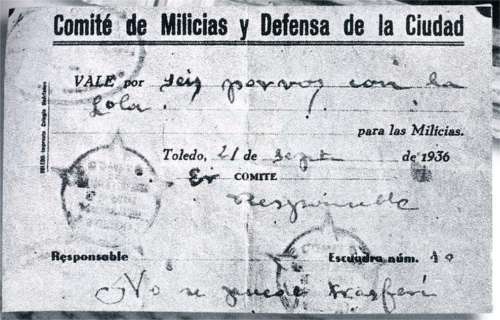 Comité de Milicias y Defensa de la Ciudad
VALE por seis porvos con la
Lola.
para las Milicias.
Toledo, 21 de sept de 1936
Er COMITE
Responsable
Responsable Escuadra núm. 10
No se puede trasferi